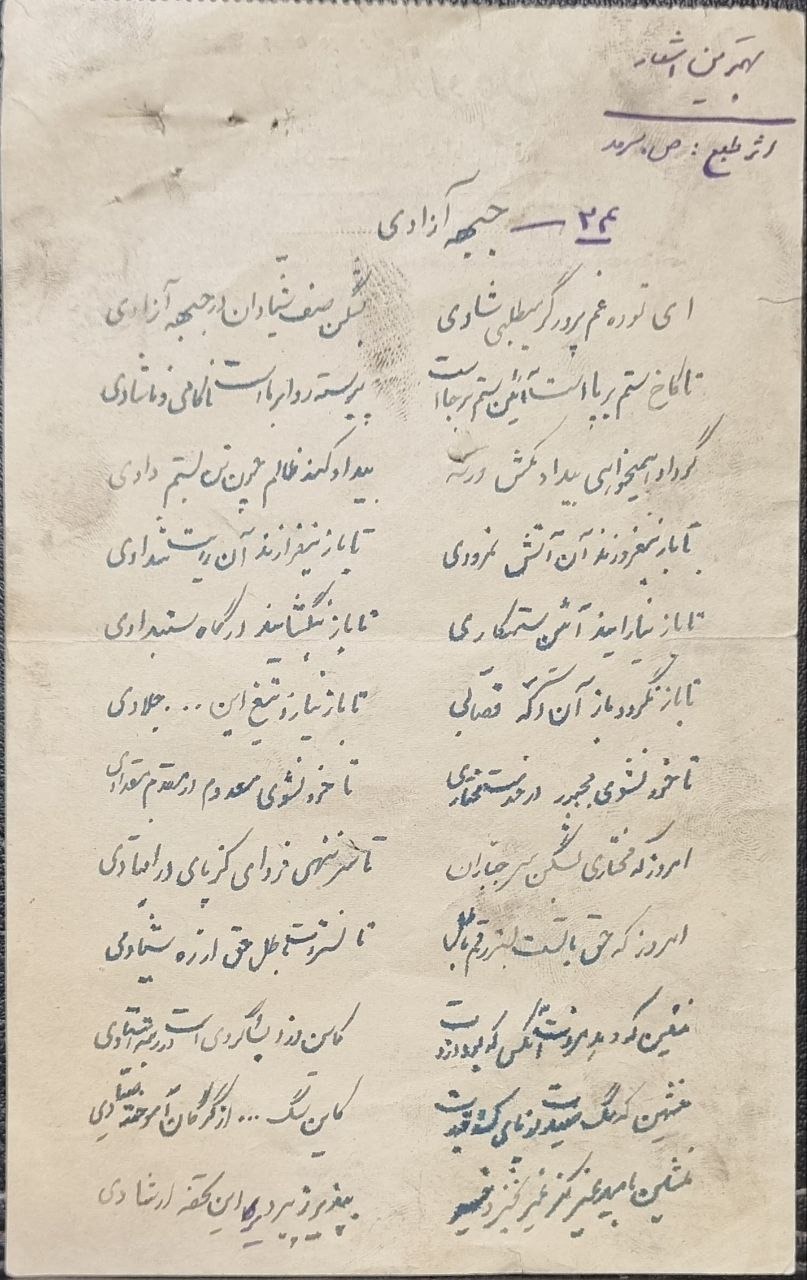 بهترین اشعار
اثر طبع : ص. سرمد
۳۴ — جبهه آزادی
ای توده غم پرور گر میطلبی شادی بشکن صف شیادان در جبهه آزادی
تا کاخ ستم برپا است آئین ستم برجا است پیوسته روا بر ما است ناکامی و ناشادی
گر داد همیخواهی بیداد مکش ورنه بیداد کند ظالم چون تن بستم دادی
تا باز نیفروزند آن آتش نمرودی تا باز نیفرازند آن رایت شدادی
تا باز نیارایند آئین ستمکاری تا باز نگشایند درگاه ستبدادی
تا باز نگردد باز آن دکه قصابی تا باز نیازد تیغ این ... جلادی
تا خود نشوی مجبور در خدمت مختاری تا خود نشوی معدوم در مقدم معتادی
امروز که مختاری بشکن سر جباران تا سر ننهی فردای کز پای در افتادی
امروز که حق با تست بستر رقم باطل تا نسترد باطل حق از ره شیادی
منشین که دد امروز است آنکس که بود دزد کاین دزد بشاگردی است در رتبه استادی
منشین که سگ کاین سگ ... از گرگان آموخته صیادی
منشین بامید غیر کز غیر نخیزد خیر بپذیر ز پیر دیر این تحفه ارشادی